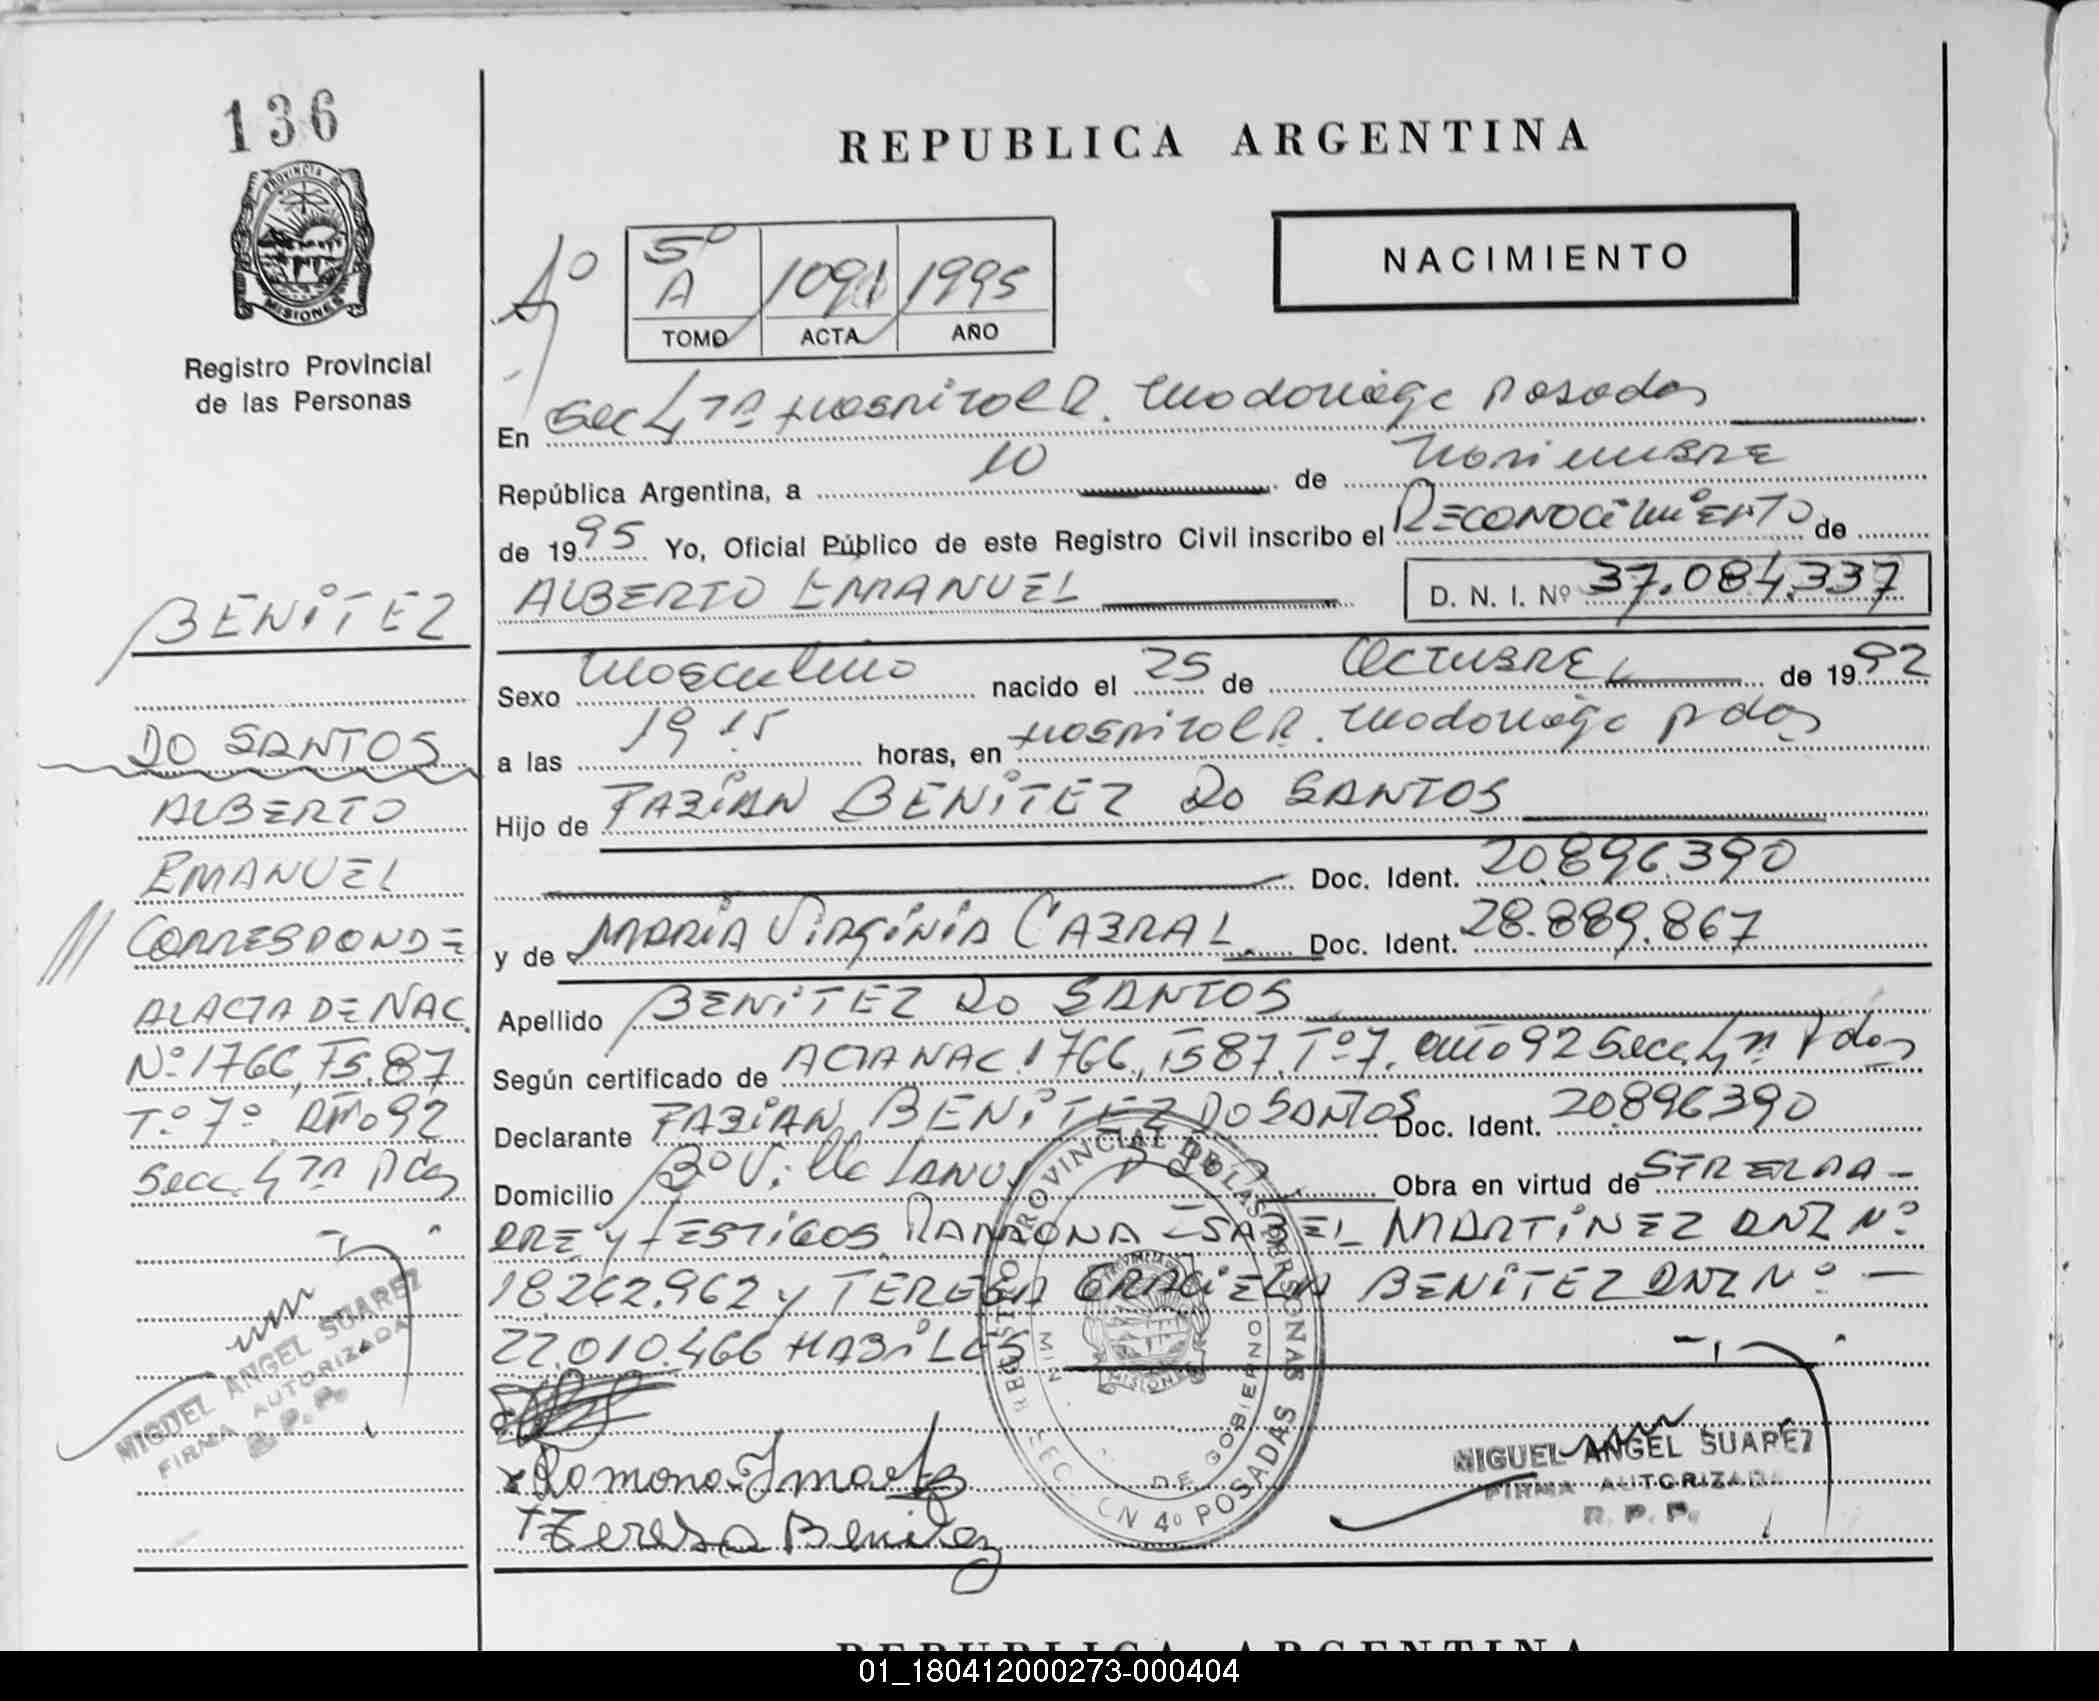 136
PROVINCIA DE
MISIONES
Registro Provincial
de las Personas
REPUBLICA ARGENTINA
NACIMIENTO
5º
A 1091 1995
TOMO ACTA AÑO
En Sec 4ta Hospital R. Madariaga Posadas
República Argentina, a 10 de Noviembre
de 1995 Yo, Oficial Público de este Registro Civil inscribo el RECONOCIMIENTO de
ALBERTO EMANUEL D. N. I. Nº 37.084.337
Sexo Masculino nacido el 25 de OCTUBRE de 1992
a las 19 15 horas, en Hospital R. Madariaga Pdas
Hijo de FABIAN BENITEZ DO SANTOS
Doc. Ident. 20.896.390
y de MARIA VIRGINIA CABRAL Doc. Ident. 28.889.867
Apellido BENITEZ DO SANTOS
Según certificado de ACTA NAC. 1766, Fs 87, Tº 7, año 92 Secc. 4ta Pdas
Declarante FABIAN BENITEZ DO SANTOS Doc. Ident. 20.896390
Domicilio Bº Villa LANUS Obra en virtud de SER EL PA-
DRE y TESTIGOS, RAMONA ISABEL MARTINEZ DNI Nº
18.262.962 y TERESA GRACIELA BENITEZ DNI Nº
22.010.466 HABILES
Ramona I Martinez
Teresa Benitez
REGISTRO PROVINCIAL DE LAS PERSONAS
MIN. DE GOBIERNO
SECCION 4º POSADAS
MISIONES
MIGUEL ANGEL SUAREZ
FIRMA AUTORIZADA
R. P. P.
BENITEZ
DO SANTOS
ALBERTO
EMANUEL
CORRESPONDE
AL ACTA DE NAC.
Nº 1766, Fs. 87
Tº 7º AÑO 92
Secc. 4ta Pdas
MIGUEL ANGEL SUAREZ
FIRMA AUTORIZADA
R. P. P.
REPUBLICA ARGENTINA
01_180412000273-000404